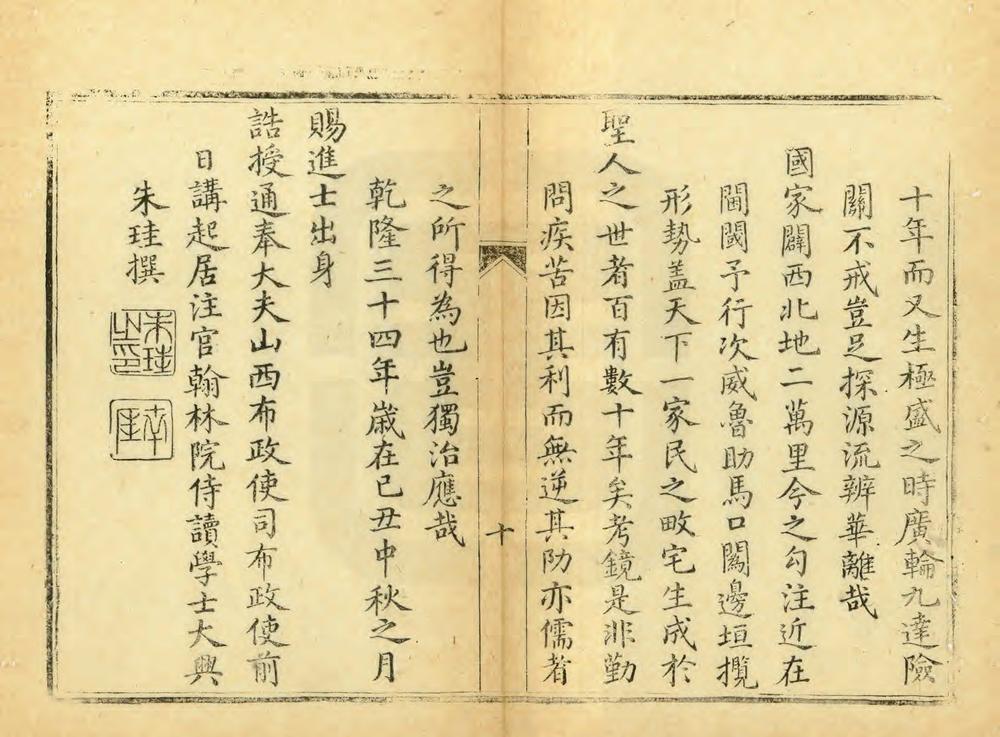 十年而又生極盛之時廣輪九達險
關不戒豈足探源流辨華離哉
國家闢西北地二萬里今之勾注近在
閫閾予行次威魯助馬口闚邊垣攬
形勢盖天下一家民之畋宅生成於
聖人之世者百有數十年矣考鏡是非勤
問疾苦因其利而無逆其阞亦儒者
十
之所得為也豈獨治應哉
乾隆三十四年歲在己丑中秋之月
賜進士出身
誥授通奉大夫山西布政使司布政使前
日講起居注官翰林院侍讀學士大興
朱珪撰
朱珪之印